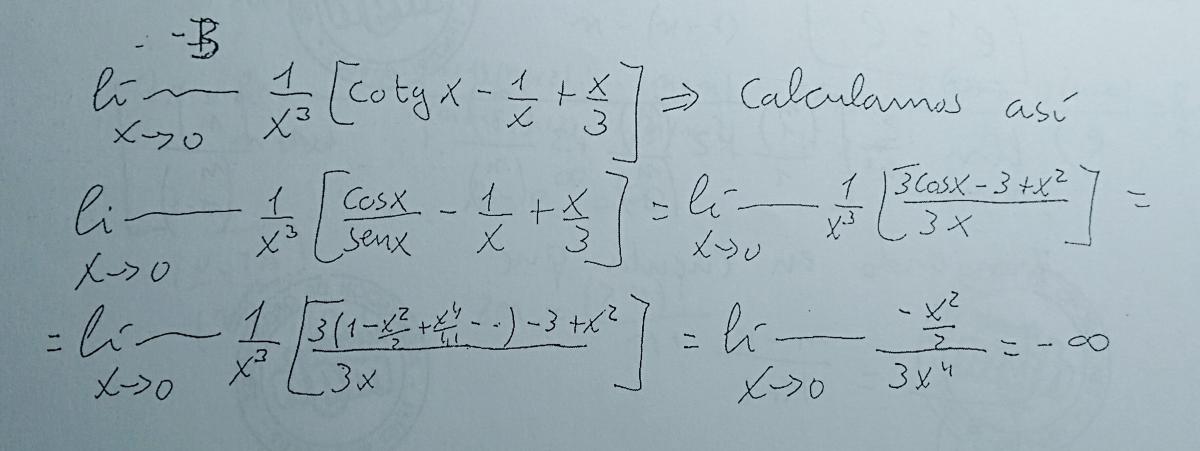 - B
lim x→0 1/x³ [cotg x - 1/x + x/3] ⇒ Calculamos así
lim x→0 1/x³ [cosx/senx - 1/x + x/3] = lim x→0 1/x³ [(3cosx - 3 + x²)/3x] =
= lim x→0 1/x³ [(3(1 - x²/2 + x⁴/4! - ...) - 3 + x²)/3x] = lim x→0 (-x²/2)/3x⁴ = -∞